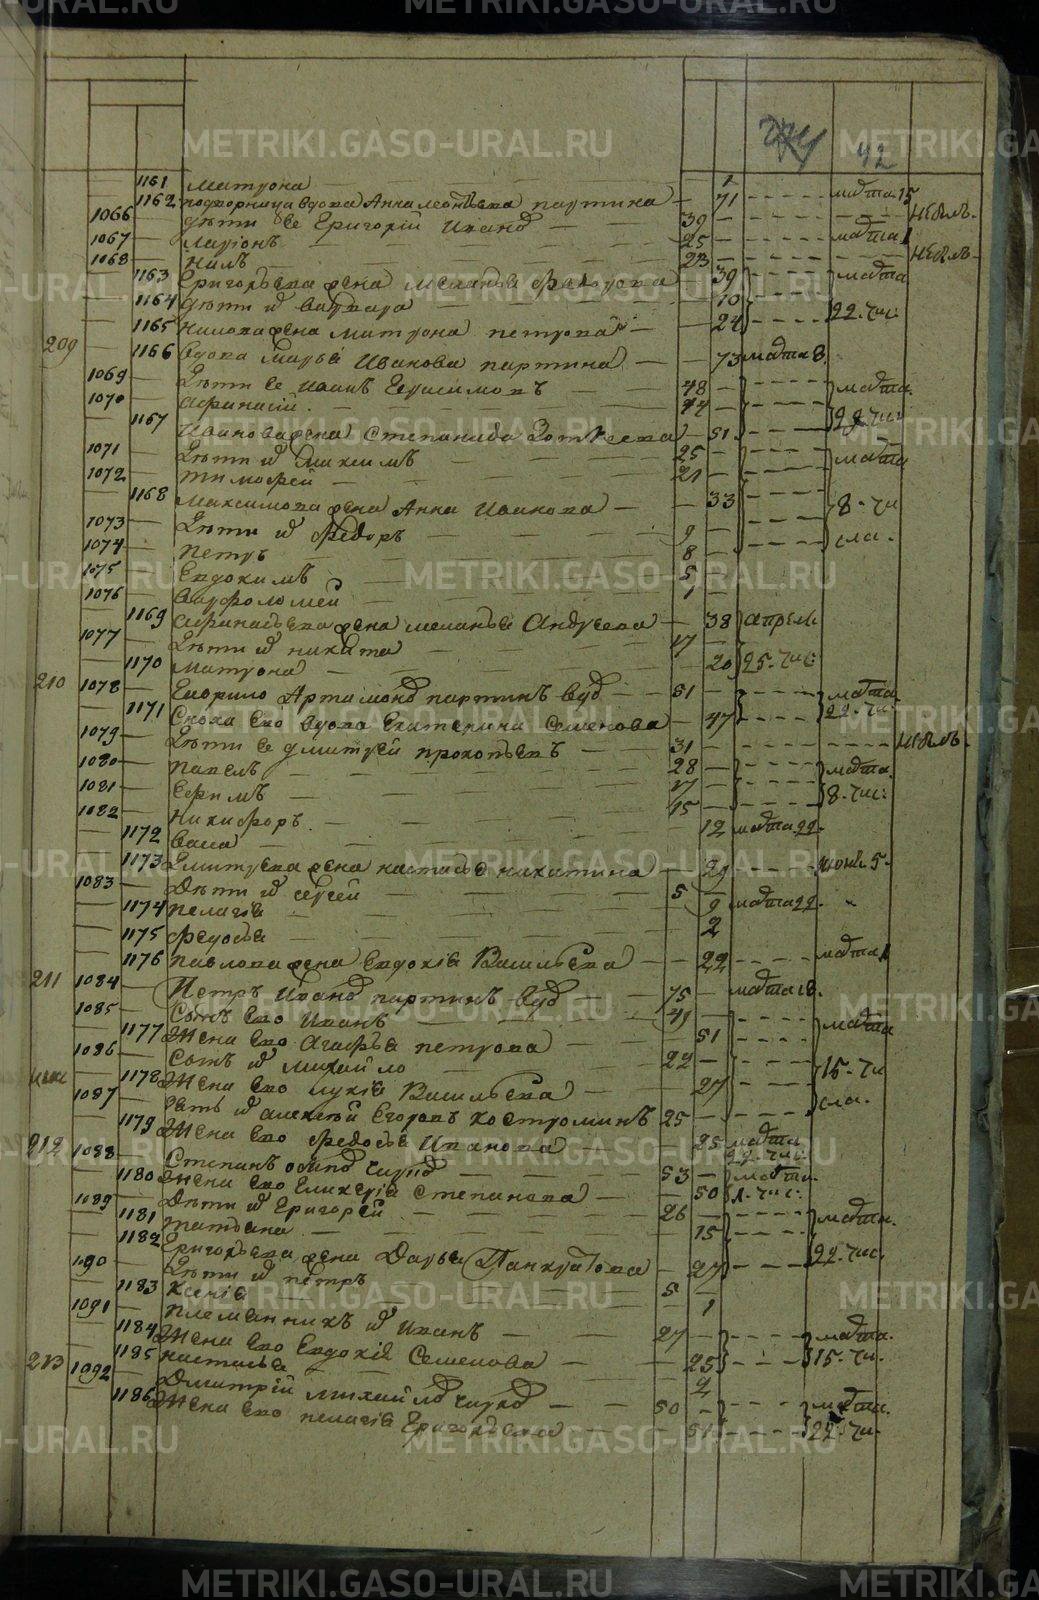 METRIKI.GASO-URAL.RU
42
1161 Матрона 1
1162 подворница вдова Анна партина 71 марта 15
1066 дѣти ее Григорій Иванов 39 небылъ
1067 Ларіонъ 25 марта 1
1068 Нилъ 23 небылъ
1163 Григорьева жена Меланья Федорова 39 марта
1164 дѣти их Варвара 10
1165 Нилова жена Матрона петрова 24 22 чис:
209 1166 вдова Марья Иванова партина 73 марта 8
1069 Дѣти ее Иванъ Герасимовъ 48 марта
1070 Афанасій 44 22 чис:
1167 Иванова жена Степанида 51
1071 Дѣти их Максимъ 25 марта
1072 тимофей 21
1168 Максимова жена Анна Иванова 33 8 чи
1073 Дѣти их Федоръ 9 сла.
1074 петръ 8
1075 Евдокимъ 5
1076 варфоломей 1
1169 Афанасьева жена меланья Андреева 38 апреля
1077 Дѣти их никита 17
1170 Матрона 20 25 чис:
210 1078 Гаврило Артамонов партинъ вдов 51 марта
1171 Сноха его вдова Екатерина Семенова 47 22 чи:
1079 Дѣти ее дмитрей прокопьевъ 31 небылъ
1080 павелъ 28 марта
1081 Ефимъ 17 8 чис:
1082 Никифоръ 15
1172 васа 12 марта 22
1173 Дмитриева жена настасья никитина 29 июня 5
1083 Дѣти их сергей 5
1174 пелагія 9 марта 22
1175 федосья 2
1176 павлова жена Евдокія Васильева 22 марта 1
211 1084 Петръ Иванов партинъ вдов 75 марта 18
1085 Сынъ его Иванъ 41 марта
1177 Жена его Агафья петрова 51
1086 Сынъ их михайло 22 15 чи
1178 Жена его лукія Васильева 27 сла.
1087 зять их алексей Егоровъ костроминъ 25
1179 Жена его федосья Иванова 25 марта 22 чис:
212 1088 Степанъ осипов 53 марта
1180 Жена его Гликерія степанова 50 1 чис:
1089 Дѣти их Григорей 26 марта
1181 татьяна 15
1182 Григорьева жена Дарья Панкратова 27 22 чис:
1090 Дѣти их петръ 5
1183 Ксенія 1
1091 племянникъ их Иванъ 27 марта
1184 Жена его Евдокія Семенова 25 15 чи.
1185 настасья 2
213 1092 Дмитрій михайлов 50 марта
1186 Жена его пелагія Григорьева 51 22 чи.